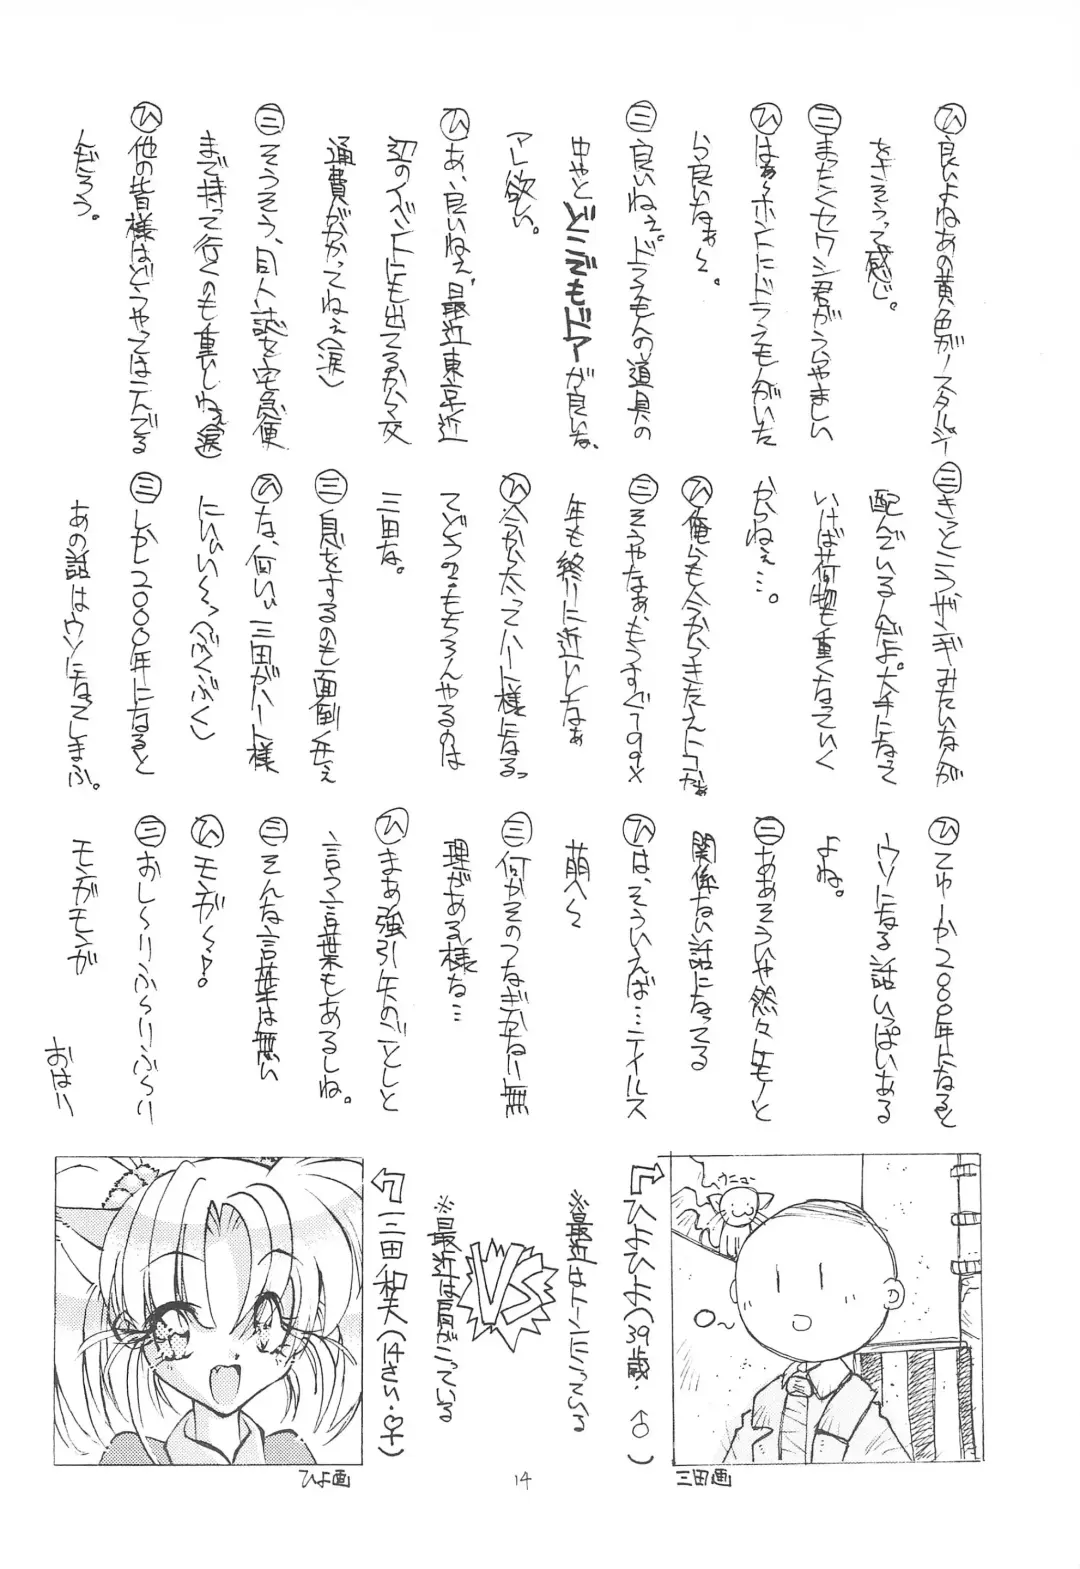 ひ 良いよねあの黄色がノスタルジー
をさそうって感じ。
三 まったくセワシ君がうらやましい
ひ はぁ〜ホントにドラえもんがいた
ら良いなぁ〜。
三 良いねぇ。ドラえもんの道具の
中やとどこでもドアーが良いな、
アレ欲い。
ひ あ、良いねぇ、最近東京近
辺のイベントにも出てるから交
通費がかかってねぇ(涙)
三 そうそう、同人誌を宅急便
まで持って行くのも重いしねぇ(涙)
ひ 他の皆様はどうやってはこんでる
んだろう。
三 きっとこうザンギみたいなんが
配んでいるんだよ。大手になって
いけば荷物も重くなっていく
からねぇ…。
ひ 俺らも今からきたえにゃ
三 そうやなぁ、もうすぐ199X
年も終りに近いしなぁ
ひ 今から太ってハート様になるっ
てどうの?もちろんやるのは
三田な。
三 息をするのも面倒くせぇ
ひ な、何ぃい三田がハート様
にいぃい〜っ(ぶくぶく)
三 しかし2000年になると
あの話はウソになってしまふ。
ひ てゆーか2000年になると
ウソになる話いっぱいある
よね。
三 ああそういや然々年モノと
関係ない話になってる
ひ は、そういえば…テイルス
萌へ〜
三 何かそのつなぎかなり無
理がある様な…
ひ まあ強引矢のごとしと
言う言葉もあるしね。
三 そんな言葉は無い
ひ モンガ〜!
三 おし〜りふ〜りふ〜り
モンガモンガ
おはり
ひよひよ(39歳・♂)
※最近はトーンにこっている
VS
※最近は肩がこっている
三田和夫(14さい・♡子)
ウニュー
三田画
ひよ画
14